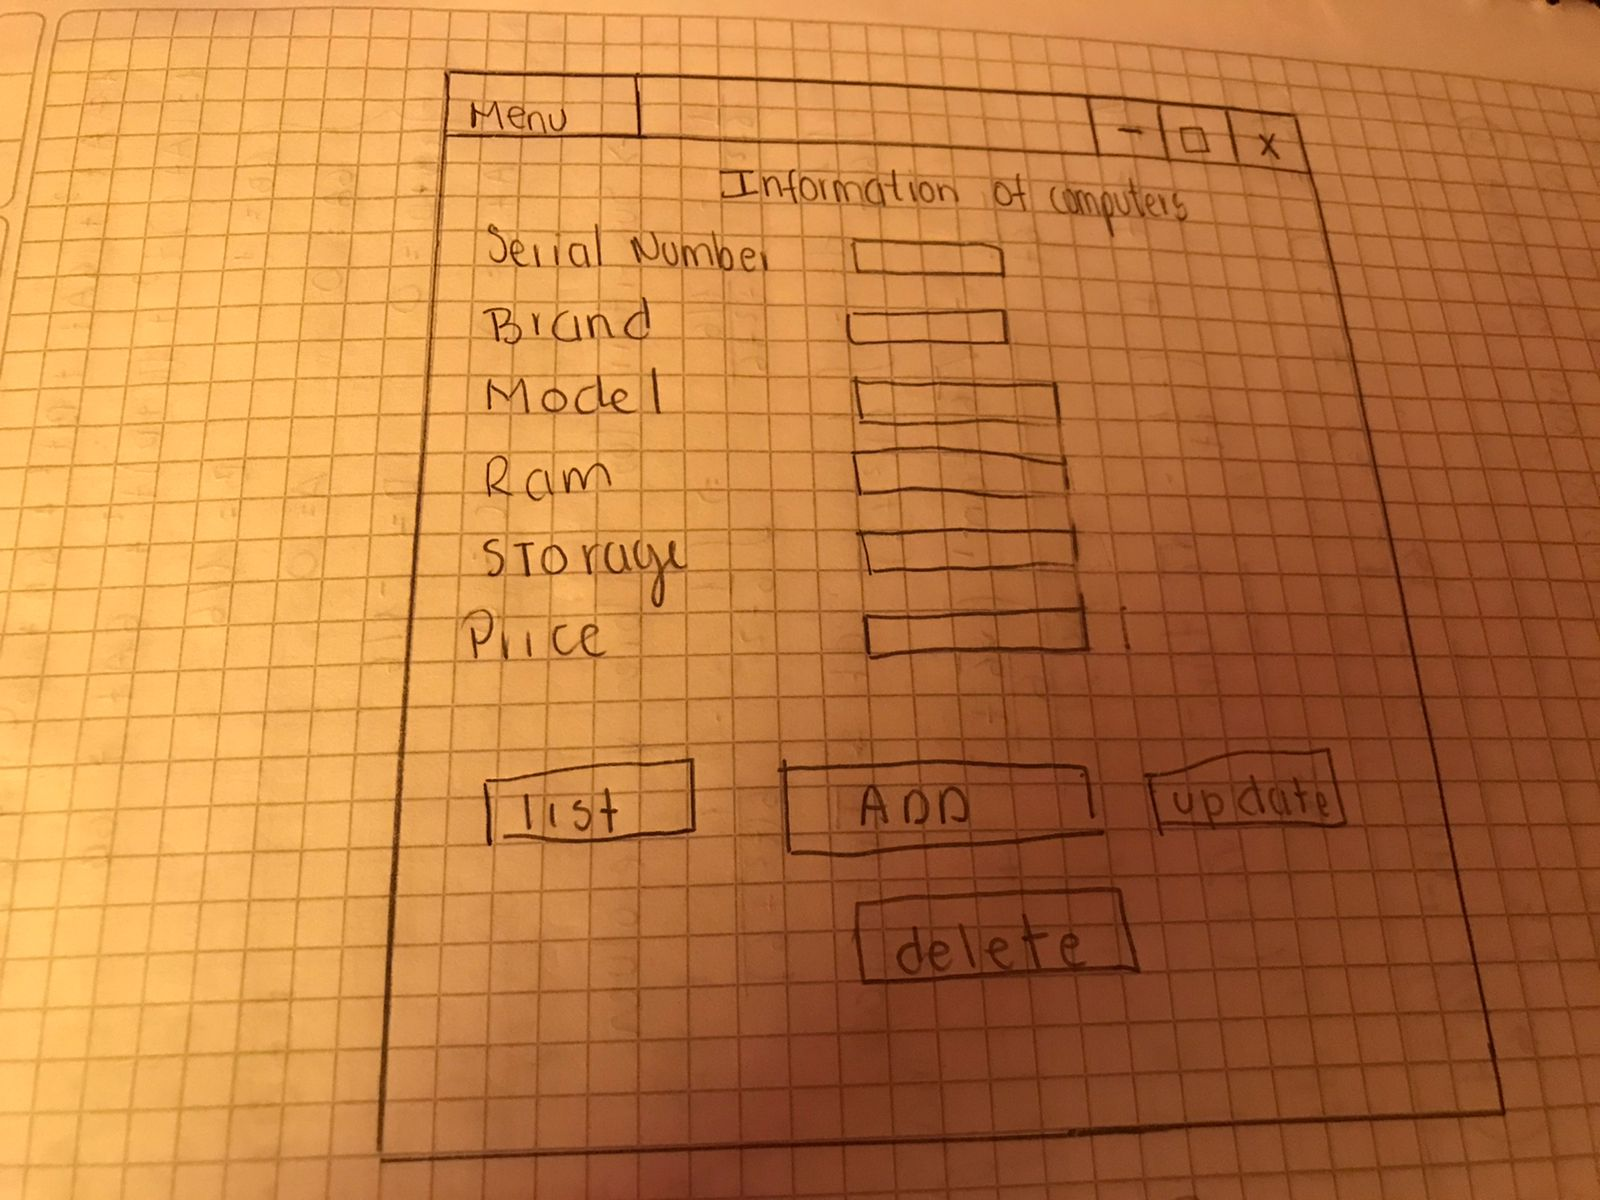 Menu
Information of computers
Serial Number
Brand
Model
Ram
Storage
Price
list
ADD
update
delete